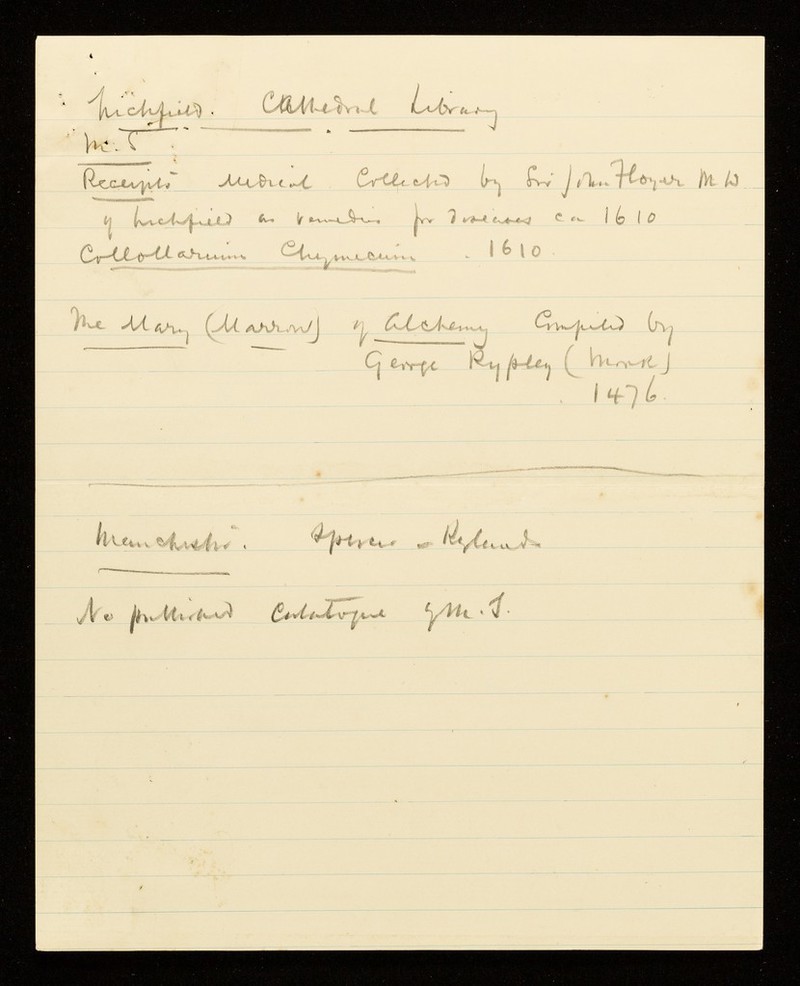 Lichfield. Cathedral Library
M.S.
Receipts Medical Collected by Sir John Floyer M D
of Lichfield as remedies for diseases ca 1610
Collollarium Chymicum . 1610.
The Mary (Marrow) of Alchemy Compiled by
George Rypley (Monk)
1476.
Manchester. Spencer - Rylands
No published Catalogue of M.S.